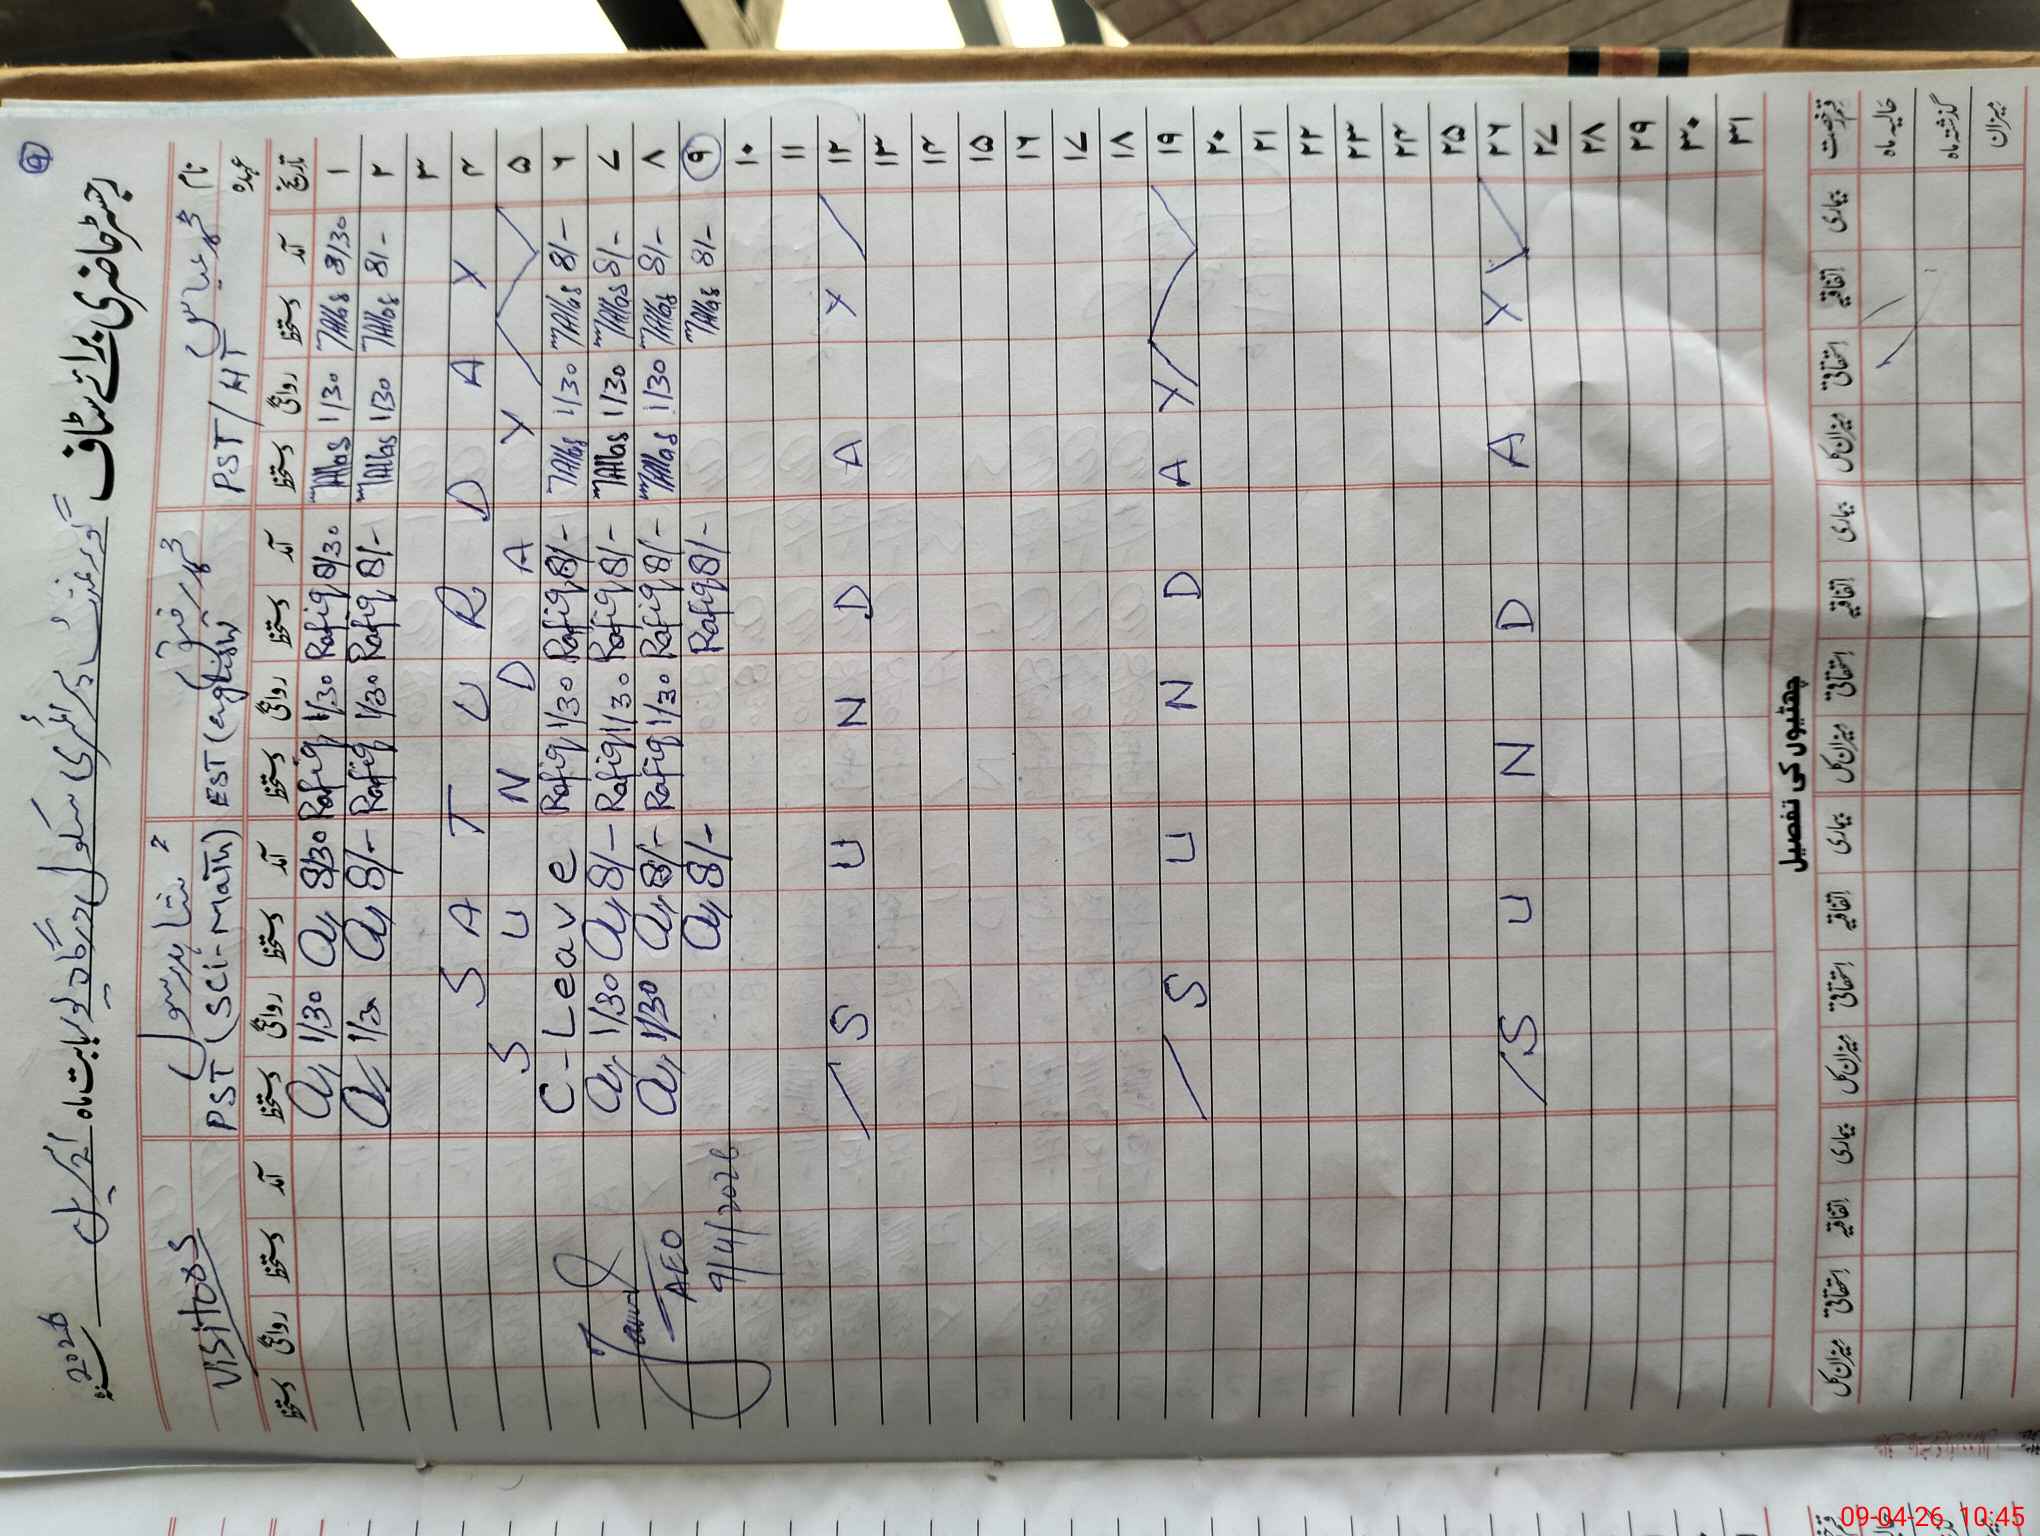 رجسٹر حاضری برائے سٹاف گورنمنٹ پرائمری سکول درگاہی پور بابت ماہ اپریل 2026
9
نام محمد عباس محمد رفیق شاہد رسول Visitors
عہدہ PST/HT EST (english) PST (Sci-math)
تاریخ آمد دستخط روانگی دستخط آمد دستخط روانگی دستخط آمد دستخط روانگی دستخط آمد دستخط روانگی دستخط
۱ 8/30 MAbbas 1/30 MAbbas 8/30 Rafiq 1/30 Rafiq 8/30 1/30
۲ 8/- MAbbas 1/30 MAbbas 8/- Rafiq 1/30 Rafiq 8/- 1/30
۳
۴ S A T U R D A Y
۵ S U N D A Y
۶ 8/- MAbbas 1/30 MAbbas 8/- Rafiq 1/30 Rafiq C-Leave
۷ 8/- MAbbas 1/30 MAbbas 8/- Rafiq 1/30 Rafiq 8/- 1/30
۸ 8/- MAbbas 1/30 MAbbas 8/- Rafiq 1/30 Rafiq 8/- 1/30
۹ 8/- MAbbas 8/- Rafiq 8/-
AEO
9/4/2026
۱۰
۱۱
۱۲ S U N D A Y
۱۳
۱۴
۱۵
۱۶
۱۷
۱۸
۱۹ S U N D A Y
۲۰
۲۱
۲۲
۲۳
۲۴
۲۵
۲۶ S U N D A Y
۲۷
۲۸
۲۹
۳۰
۳۱
چھٹیوں کی تفصیل
قسم رخصت بیماری اتفاقیہ استحقاقی میزان کل بیماری اتفاقیہ استحقاقی میزان کل بیماری اتفاقیہ استحقاقی میزان کل بیماری اتفاقیہ استحقاقی میزان کل
حالیہ ماہ
گذشتہ ماہ
میزان
09-04-26 10:45